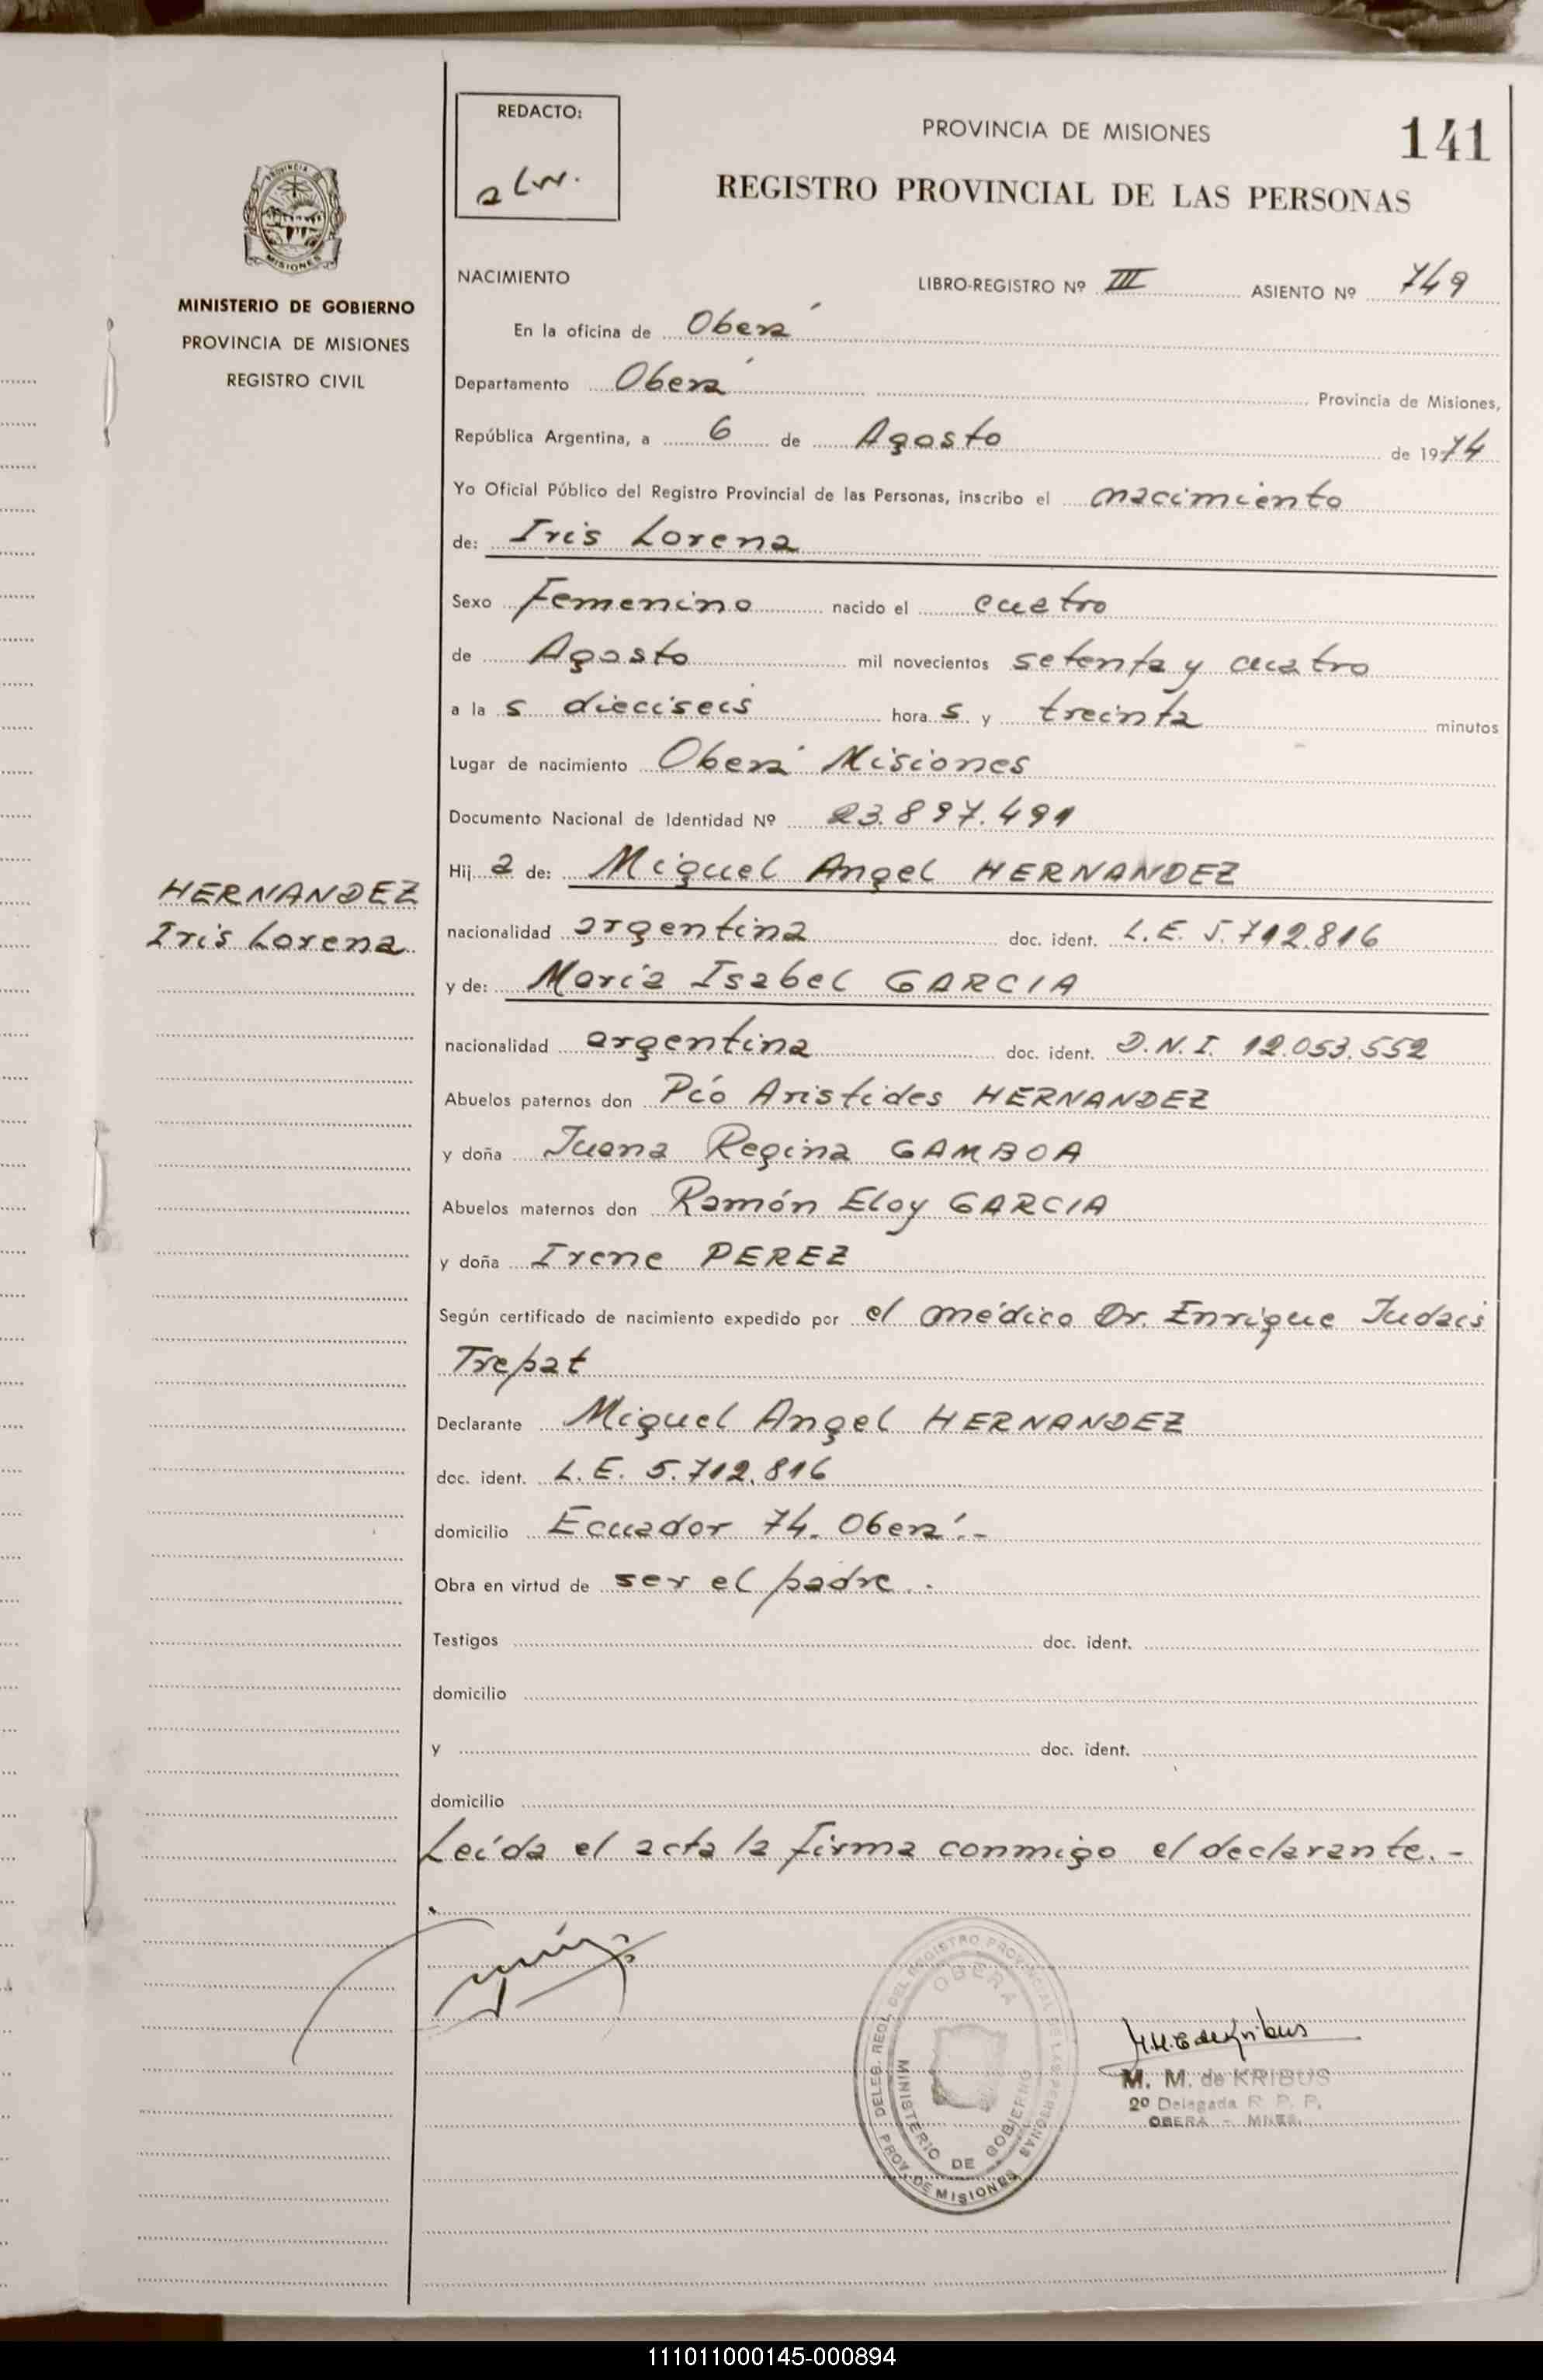 REDACTO:
PROVINCIA DE MISIONES
141
REGISTRO PROVINCIAL DE LAS PERSONAS
MISIONES
MINISTERIO DE GOBIERNO
PROVINCIA DE MISIONES
REGISTRO CIVIL
NACIMIENTO LIBRO-REGISTRO Nº III ASIENTO Nº 749
En la oficina de Oberá
Departamento Oberá Provincia de Misiones,
República Argentina, a 6 de Agosto de 1974
Yo Oficial Público del Registro Provincial de las Personas, inscribo el nacimiento
de: Iris Lorena
Sexo Femenino nacido el cuatro
de Agosto mil novecientos setenta y cuatro
a la s dieciseis hora s y treinta minutos
Lugar de nacimiento Oberá Misiones
Documento Nacional de Identidad Nº 23.897.491
Hij a de: Miguel Angel HERNANDEZ
HERNANDEZ
Iris Lorena
nacionalidad argentina doc. ident. L.E. 5.712.816
y de: María Isabel GARCIA
nacionalidad argentina doc. ident. D.N.I. 12.053.552
Abuelos paternos don Pío Aristides HERNANDEZ
y doña Juana Regina GAMBOA
Abuelos maternos don Ramón Eloy GARCIA
y doña Irene PEREZ
Según certificado de nacimiento expedido por el médico Dr. Enrique Judais
Trepat
Declarante Miguel Angel HERNANDEZ
doc. ident. L.E. 5.712.816
domicilio Ecuador 74. Oberá.-
Obra en virtud de ser el padre.
Testigos doc. ident.
domicilio
y doc. ident.
domicilio
Leída el acta la firma conmigo el declarante.-
DELEG. REGL. DEL REGISTRO PROVINCIAL DE LAS PERSONAS
OBERA
MINISTERIO DE GOBIERNO
PROV. DE MISIONES
M. M. de KRIBUS
2º Delegada R. P. P.
OBERA - MNES.
111011000145-000894